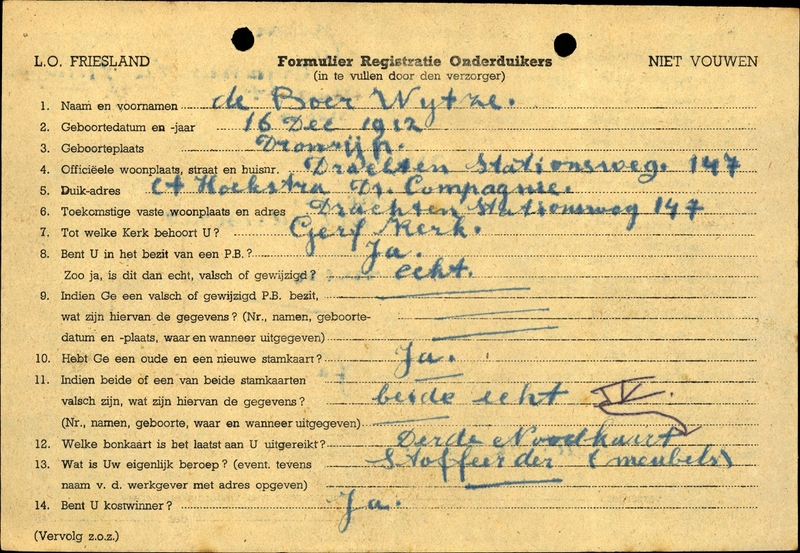 L.O. FRIESLAND Formulier Registratie Onderduikers NIET VOUWEN
(in te vullen door den verzorger)
1. Naam en voornamen de Boer Wytze.
2. Geboortedatum en -jaar 16 Dec 1912
3. Geboorteplaats Dronrijp.
4. Officiëele woonplaats, straat en huisnr. Drachten Stationsweg. 147
5. Duik-adres Hoekstra Dr. Compagnie.
6. Toekomstige vaste woonplaats en adres Drachten Stationsweg 147
7. Tot welke Kerk behoort U? Geref Kerk.
8. Bent U in het bezit van een P.B.? Ja.
Zoo ja, is dit dan echt, valsch of gewijzigd? echt.
9. Indien Ge een valsch of gewijzigd P.B. bezit,
wat zijn hiervan de gegevens? (Nr., namen, geboorte-
datum en -plaats, waar en wanneer uitgegeven)
10. Hebt Ge een oude en een nieuwe stamkaart? Ja.
11. Indien beide of een van beide stamkaarten
valsch zijn, wat zijn hiervan de gegevens? beide echt
(Nr., namen, geboorte, waar en wanneer uitgegeven)
12. Welke bonkaart is het laatst aan U uitgereikt? Derde Noodkaart
13. Wat is Uw eigenlijk beroep? (event. tevens Stoffeerder (meubels)
naam v. d. werkgever met adres opgeven)
14. Bent U kostwinner? Ja.
(Vervolg z.o.z.)